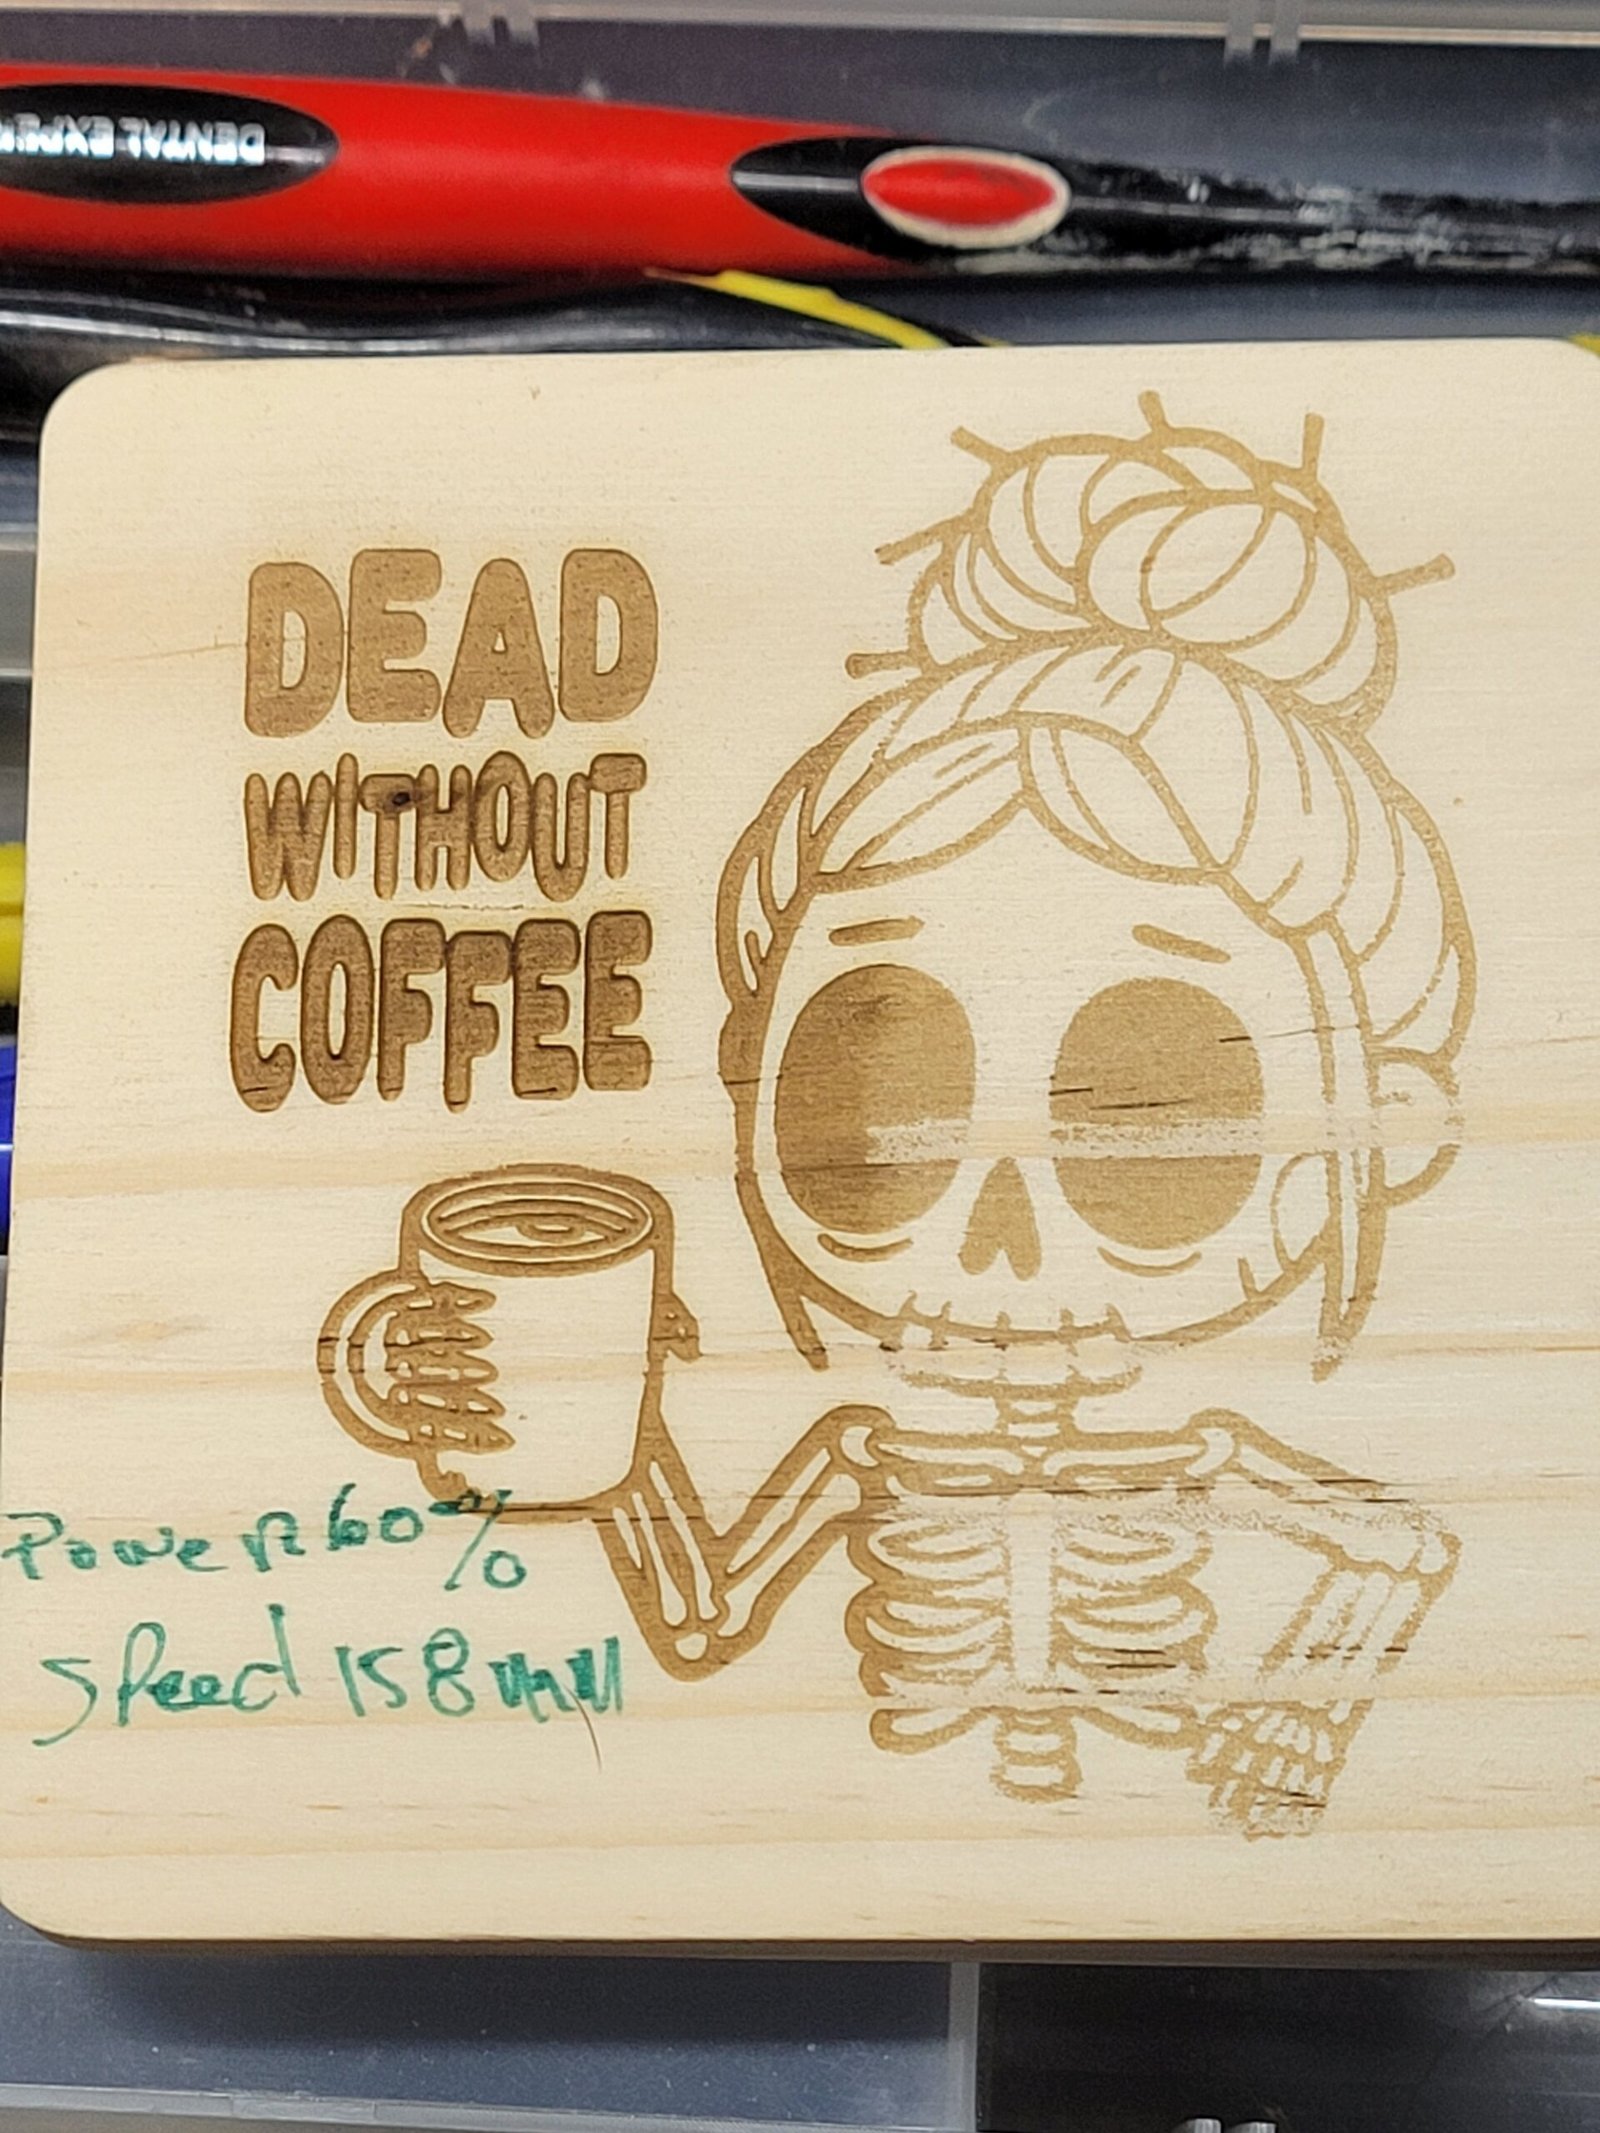 DENTAL EXPE
DEAD
WITHOUT
COFFEE
Power 60%
Speed 158 mm